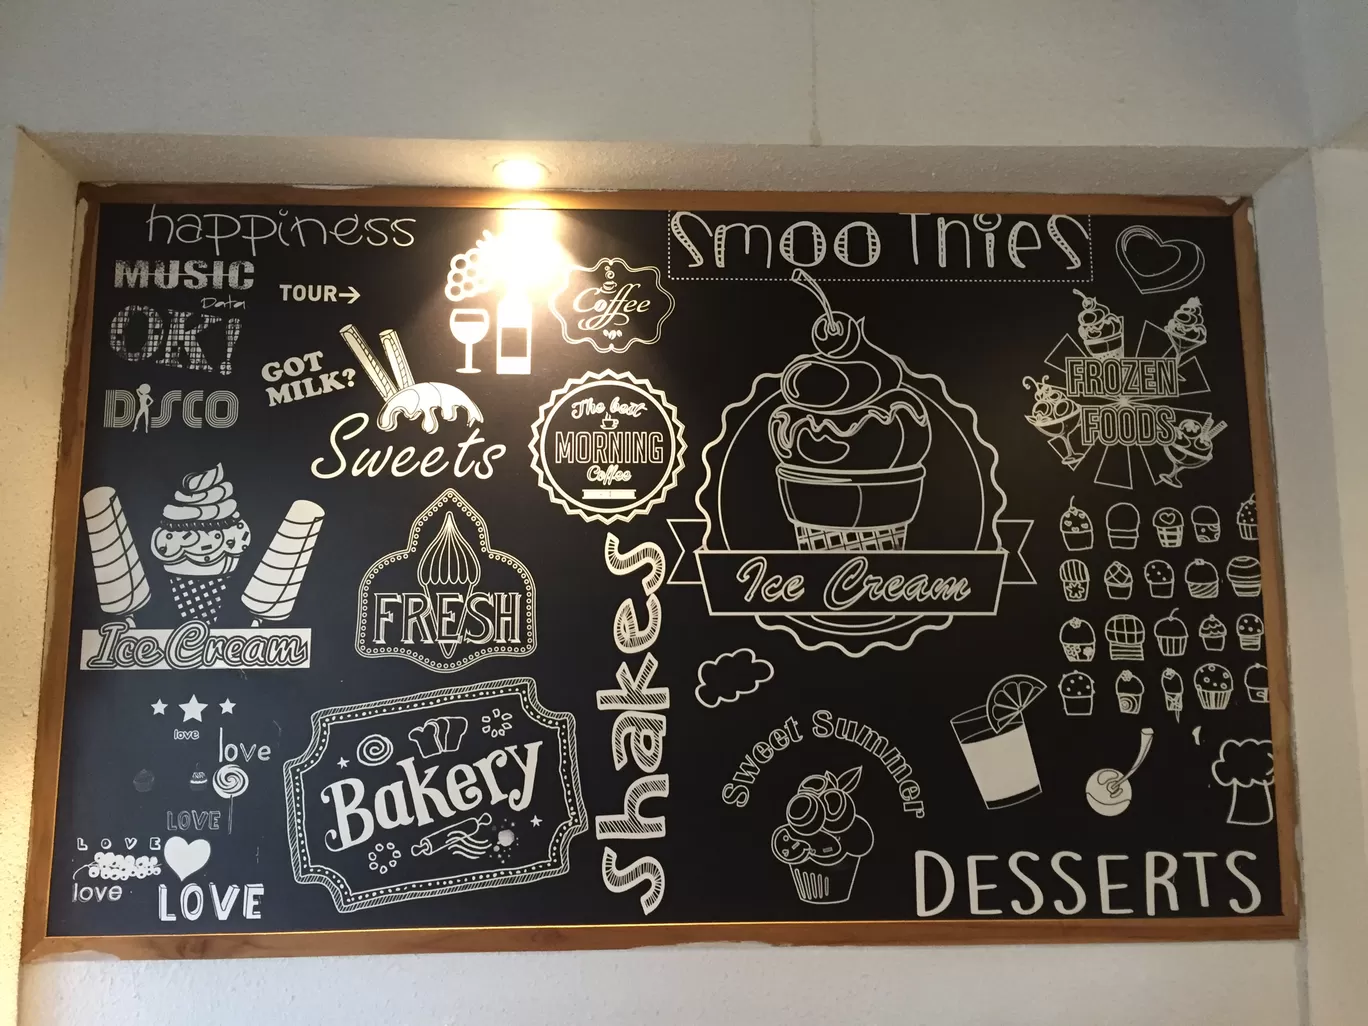 happiness
MUSIC
Data
OK!
TOUR→
DISCO
GOT
MILK?
Sweets
Coffee
The best
MORNING
Coffee
Ice Cream
FRESH
love
love
LOVE
LOVE
love
LOVE
Bakery
shakes
SmooThieS
Ice Cream
FROZEN
FOODS
Sweet Summer
DESSERTS